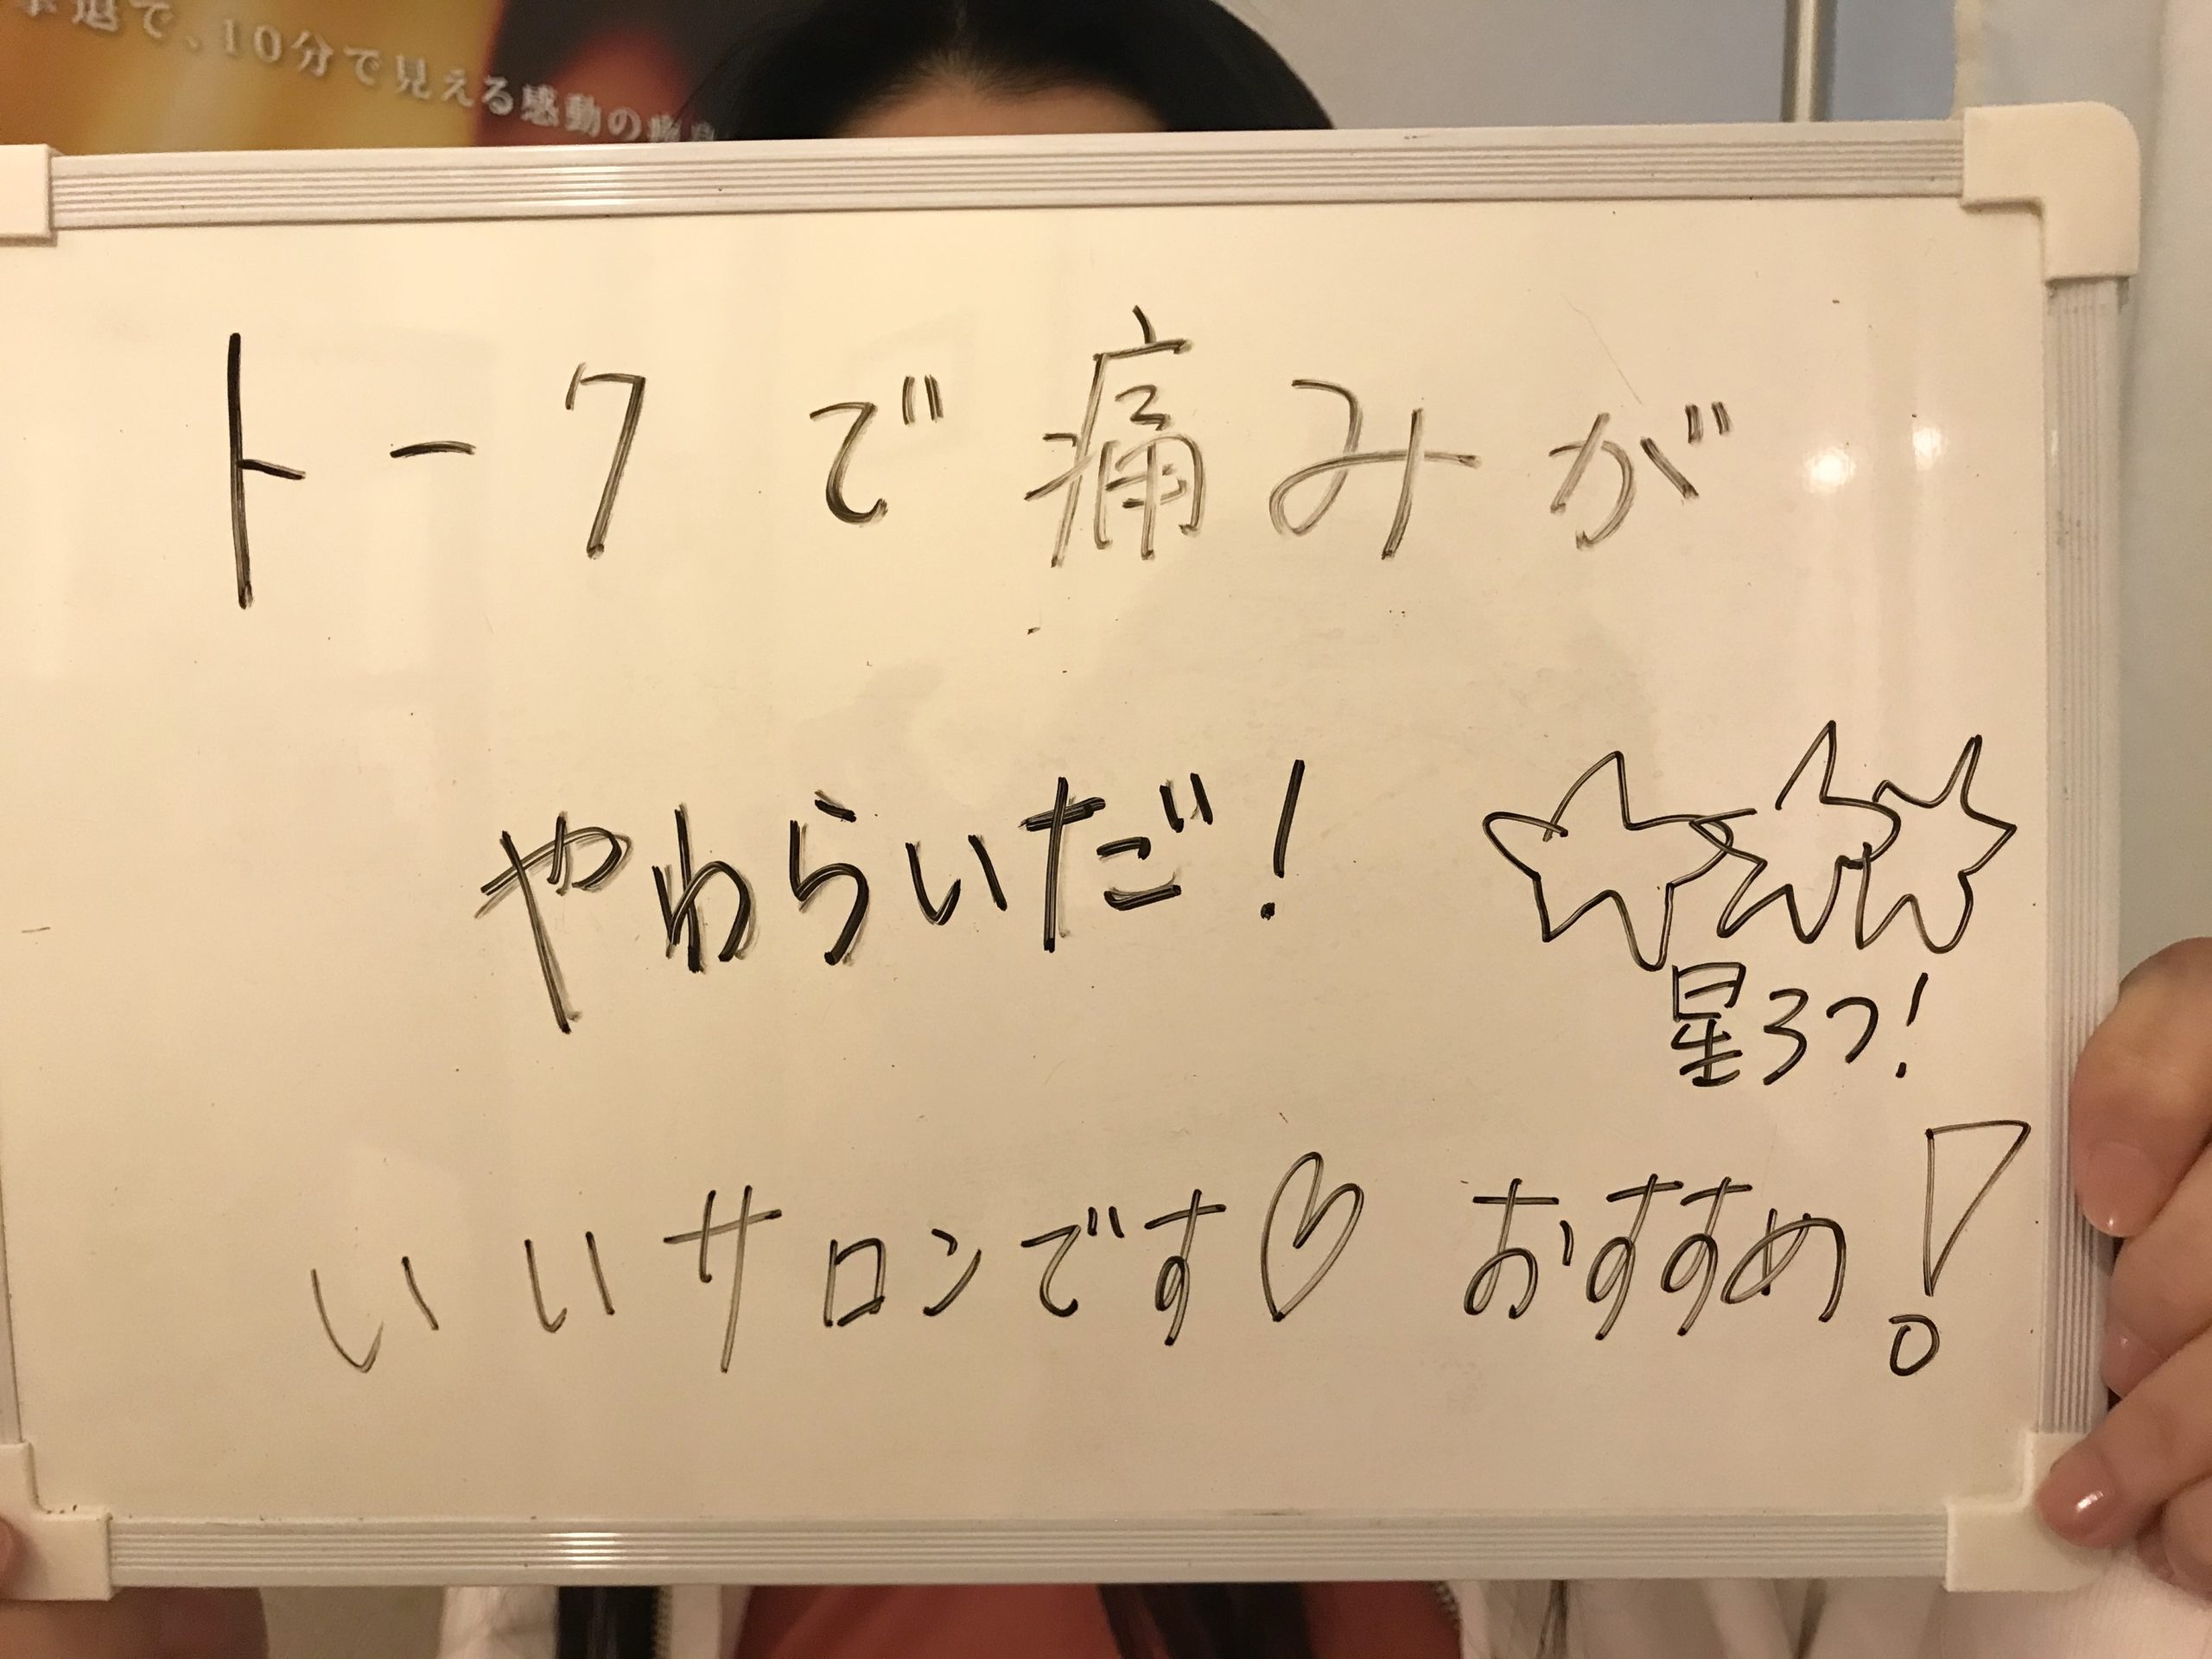 退で、10分で見える感動の
トークで痛みが
やわらいだ!
星3つ!
いいサロンです♡ おすすめ!